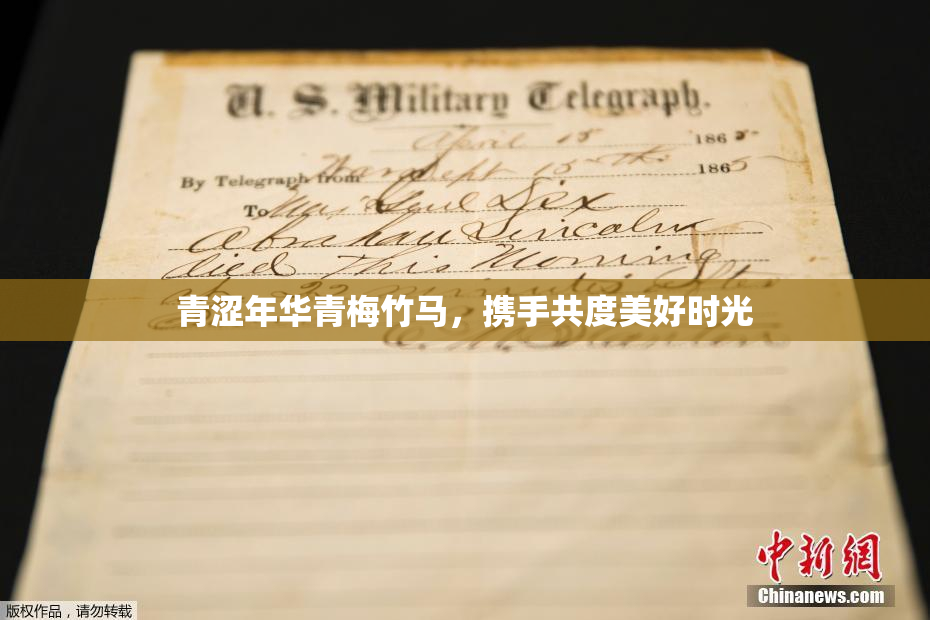 U. S. Military Telegraph.
April 15 1865
By Telegraph from War Dept 15th 1865
To Maj Genl Dix
Abraham Lincoln
died This Morning
at 22 minutes after
青涩年华青梅竹马，携手共度美好时光
E. M. Stanton
中新網
Chinanews.com
版权作品，请勿转载